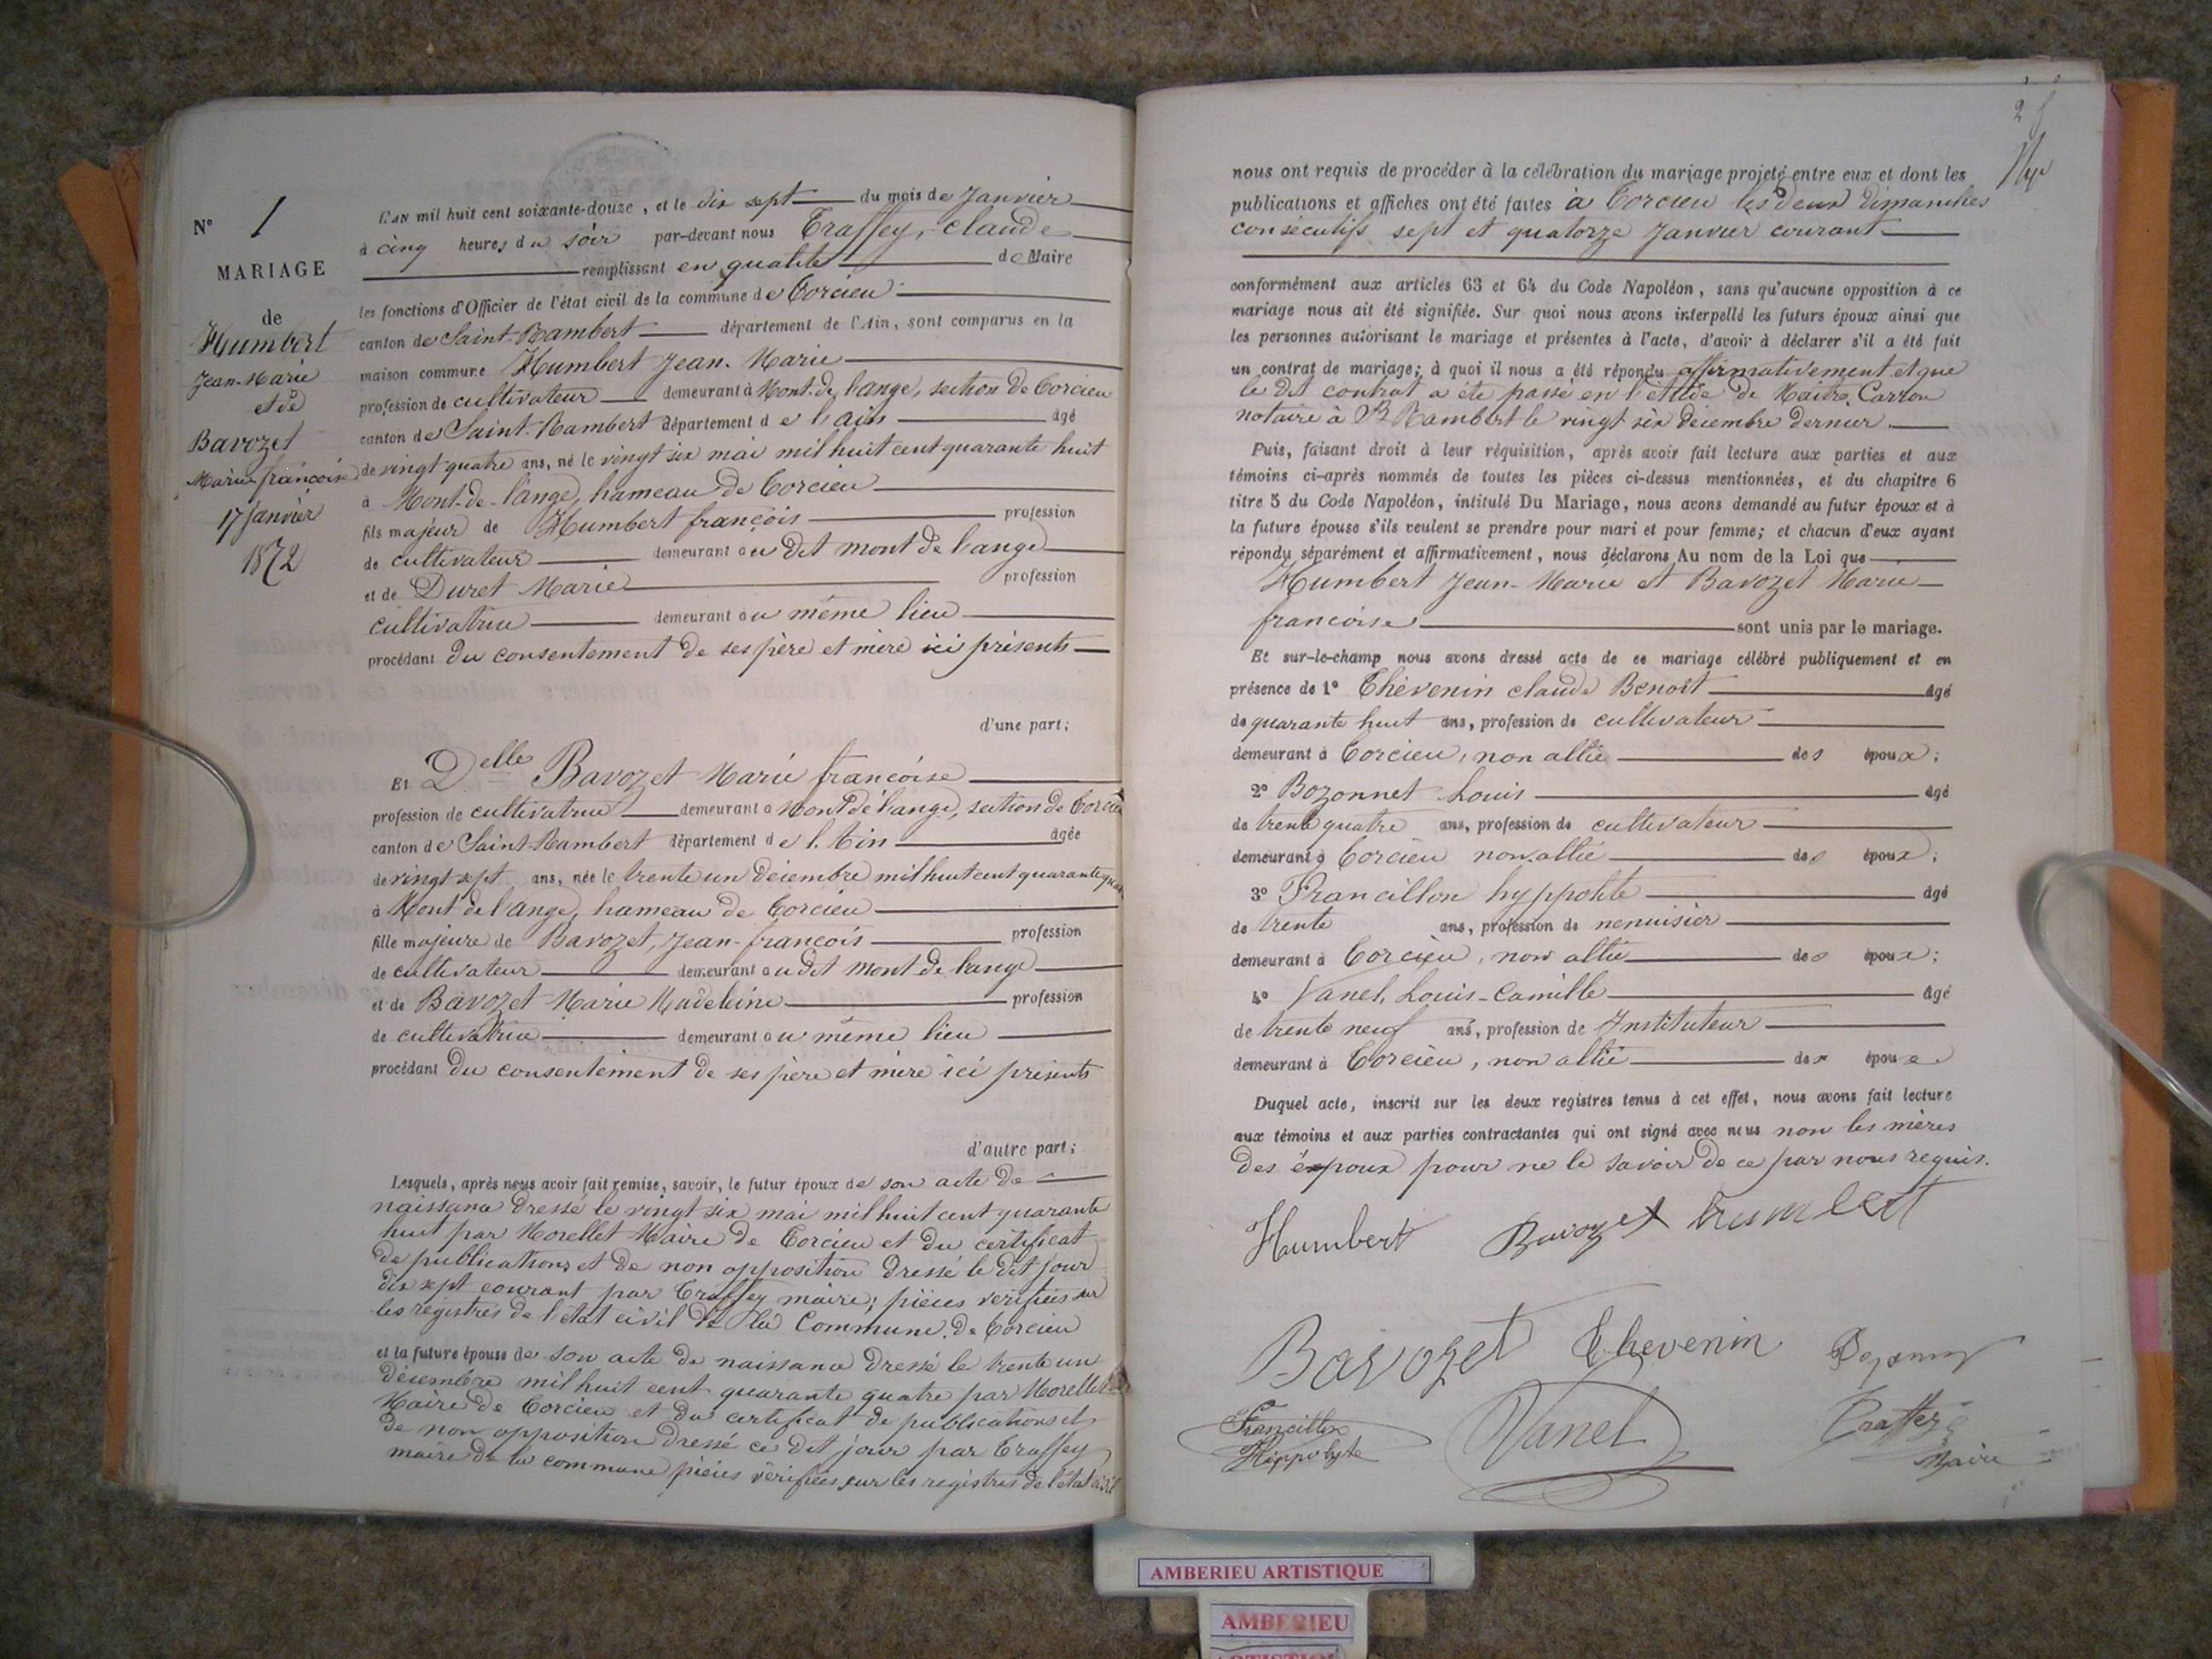 N° 1
MARIAGE
de
Humbert
Jean-Marie
et de
Bavozet
Marie françoise
17 Janvier
1872
L'AN mil huit cent soixante-douze, et le dix sept du mois de Janvier
à cinq heures du soir par-devant nous Traffey, claude
remplissant en qualité de Maire
les fonctions d'Officier de l'état civil de la commune de Torcieu
canton de Saint-Rambert département de l'Ain, sont comparus en la
maison commune Humbert Jean-Marie
profession de cultivateur demeurant à Mont-de l'ange, section de Torcieu
canton de Saint-Rambert département de l'ain âgé
de vingt quatre ans, né le vingt six mai mil huit cent quarante huit
à Mont-de-l'ange, hameau de Torcieu
fils majeur de Humbert françois profession
de cultivateur demeurant au dit mont de l'ange
et de Duret Marie profession
cultivatrice demeurant au même lieu
procédant du consentement de ses père et mère ici présents
d'une part;
Et Delle Bavozet Marie françoise
profession de cultivatrice demeurant à Mont de l'ange, section de Torcieu
canton de Saint-Rambert département de l'Ain âgée
de vingt sept ans, née le trente un décembre mil huit cent quarante quatre
à Mont de l'ange, hameau de Torcieu
fille majeure de Bavozet, Jean-françois profession
de cultivateur demeurant au dit mont de l'ange
et de Bavozet Marie Madeleine profession
de cultivatrice demeurant au même lieu
procédant du consentement de ses père et mère ici présents
d'autre part;
Lesquels, après nous avoir fait remise, savoir, le futur époux de son acte de
naissance dressé le vingt six mai mil huit cent quarante
huit par Morellet Maire de Torcieu et du certificat
de publications et de non opposition dressé le dit jour
dix sept courant par Traffey maire; pièces vérifiées sur
les registres de l'état civil de la Commune de Torcieu
et la future épouse de son acte de naissance dressé le trente un
décembre mil huit cent quarante quatre par Morellet
Maire de Torcieu et du certificat de publications et
de non opposition dressé ce dit jour par Traffey
maire de la commune pièces vérifiées sur les registres de l'état civil
2
nous ont requis de procéder à la célébration du mariage projeté entre eux et dont les
publications et affiches ont été faites à Torcieu les deux dimanches
consécutifs sept et quatorze Janvier courant
conformément aux articles 63 et 64 du Code Napoléon, sans qu'aucune opposition à ce
mariage nous ait été signifiée. Sur quoi nous avons interpellé les futurs époux ainsi que
les personnes autorisant le mariage et présentes à l'acte, d'avoir à déclarer s'il a été fait
un contrat de mariage; à quoi il nous a été répondu affirmativement et que
le dit contrat a été passé en l'étude de Maître Carron
notaire à St Rambert le vingt six décembre dernier.
Puis, faisant droit à leur réquisition, après avoir fait lecture aux parties et aux
témoins ci-après nommés de toutes les pièces ci-dessus mentionnées, et du chapitre 6
titre 5 du Code Napoléon, intitulé Du Mariage, nous avons demandé au futur époux et à
la future épouse s'ils veulent se prendre pour mari et pour femme; et chacun d'eux ayant
répondu séparément et affirmativement, nous déclarons Au nom de la Loi que
Humbert Jean-Marie et Bavozet Marie
francoise sont unis par le mariage.
Et sur-le-champ nous avons dressé acte de ce mariage célébré publiquement et en
présence de 1° Thévenin claude Benoît âgé
de quarante huit ans, profession de cultivateur
demeurant à Torcieu, non allié des époux;
2° Bozonnet Louis âgé
de trente quatre ans, profession de cultivateur
demeurant à Torcieu non allié des époux;
3° Francillon hyppolite âgé
de trente ans, profession de menuisier
demeurant à Torcieu, non allié des époux;
4° Vanel, Louis-Camille âgé
de trente neuf ans, profession de Instituteur
demeurant à Torcieu, non allié des époux
Duquel acte, inscrit sur les deux registres tenus à cet effet, nous avons fait lecture
aux témoins et aux parties contractantes qui ont signé avec nous non les mères
des époux pour ne le savoir de ce par nous requis.
Humbert Bavozet humbert
Bavozet Thevenin
Francillon Vanel Traffey
Hippolyte Maire
AMBERIEU ARTISTIQUE
AMBERIEU
ARTISTIQUE